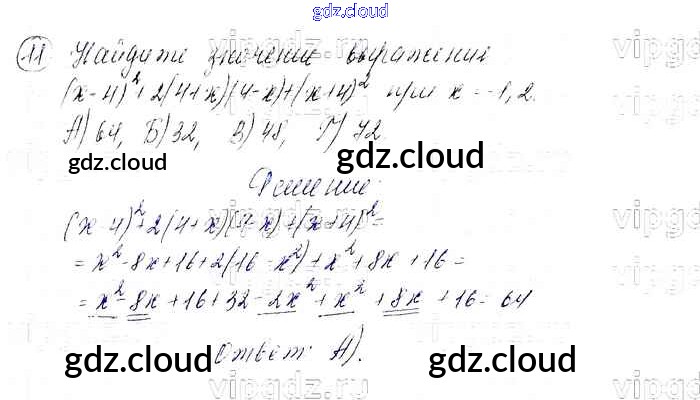 gdz.cloud
11 Найдите значение выражения
(x-4)²+2(4+x)(4-x)+(x+4)² при x = -1,2.
А) 64, Б) 32, В) 48, Г) 72.
gdz.cloud gdz.cloud
Решение:
(x-4)²+2(4+x)(4-x)+(x+4)²=
= x²-8x+16+2(16-x²)+x²+8x+16=
= x²-8x+16+32-2x²+x²+8x+16=64
Ответ: А).
gdz.cloud gdz.cloud